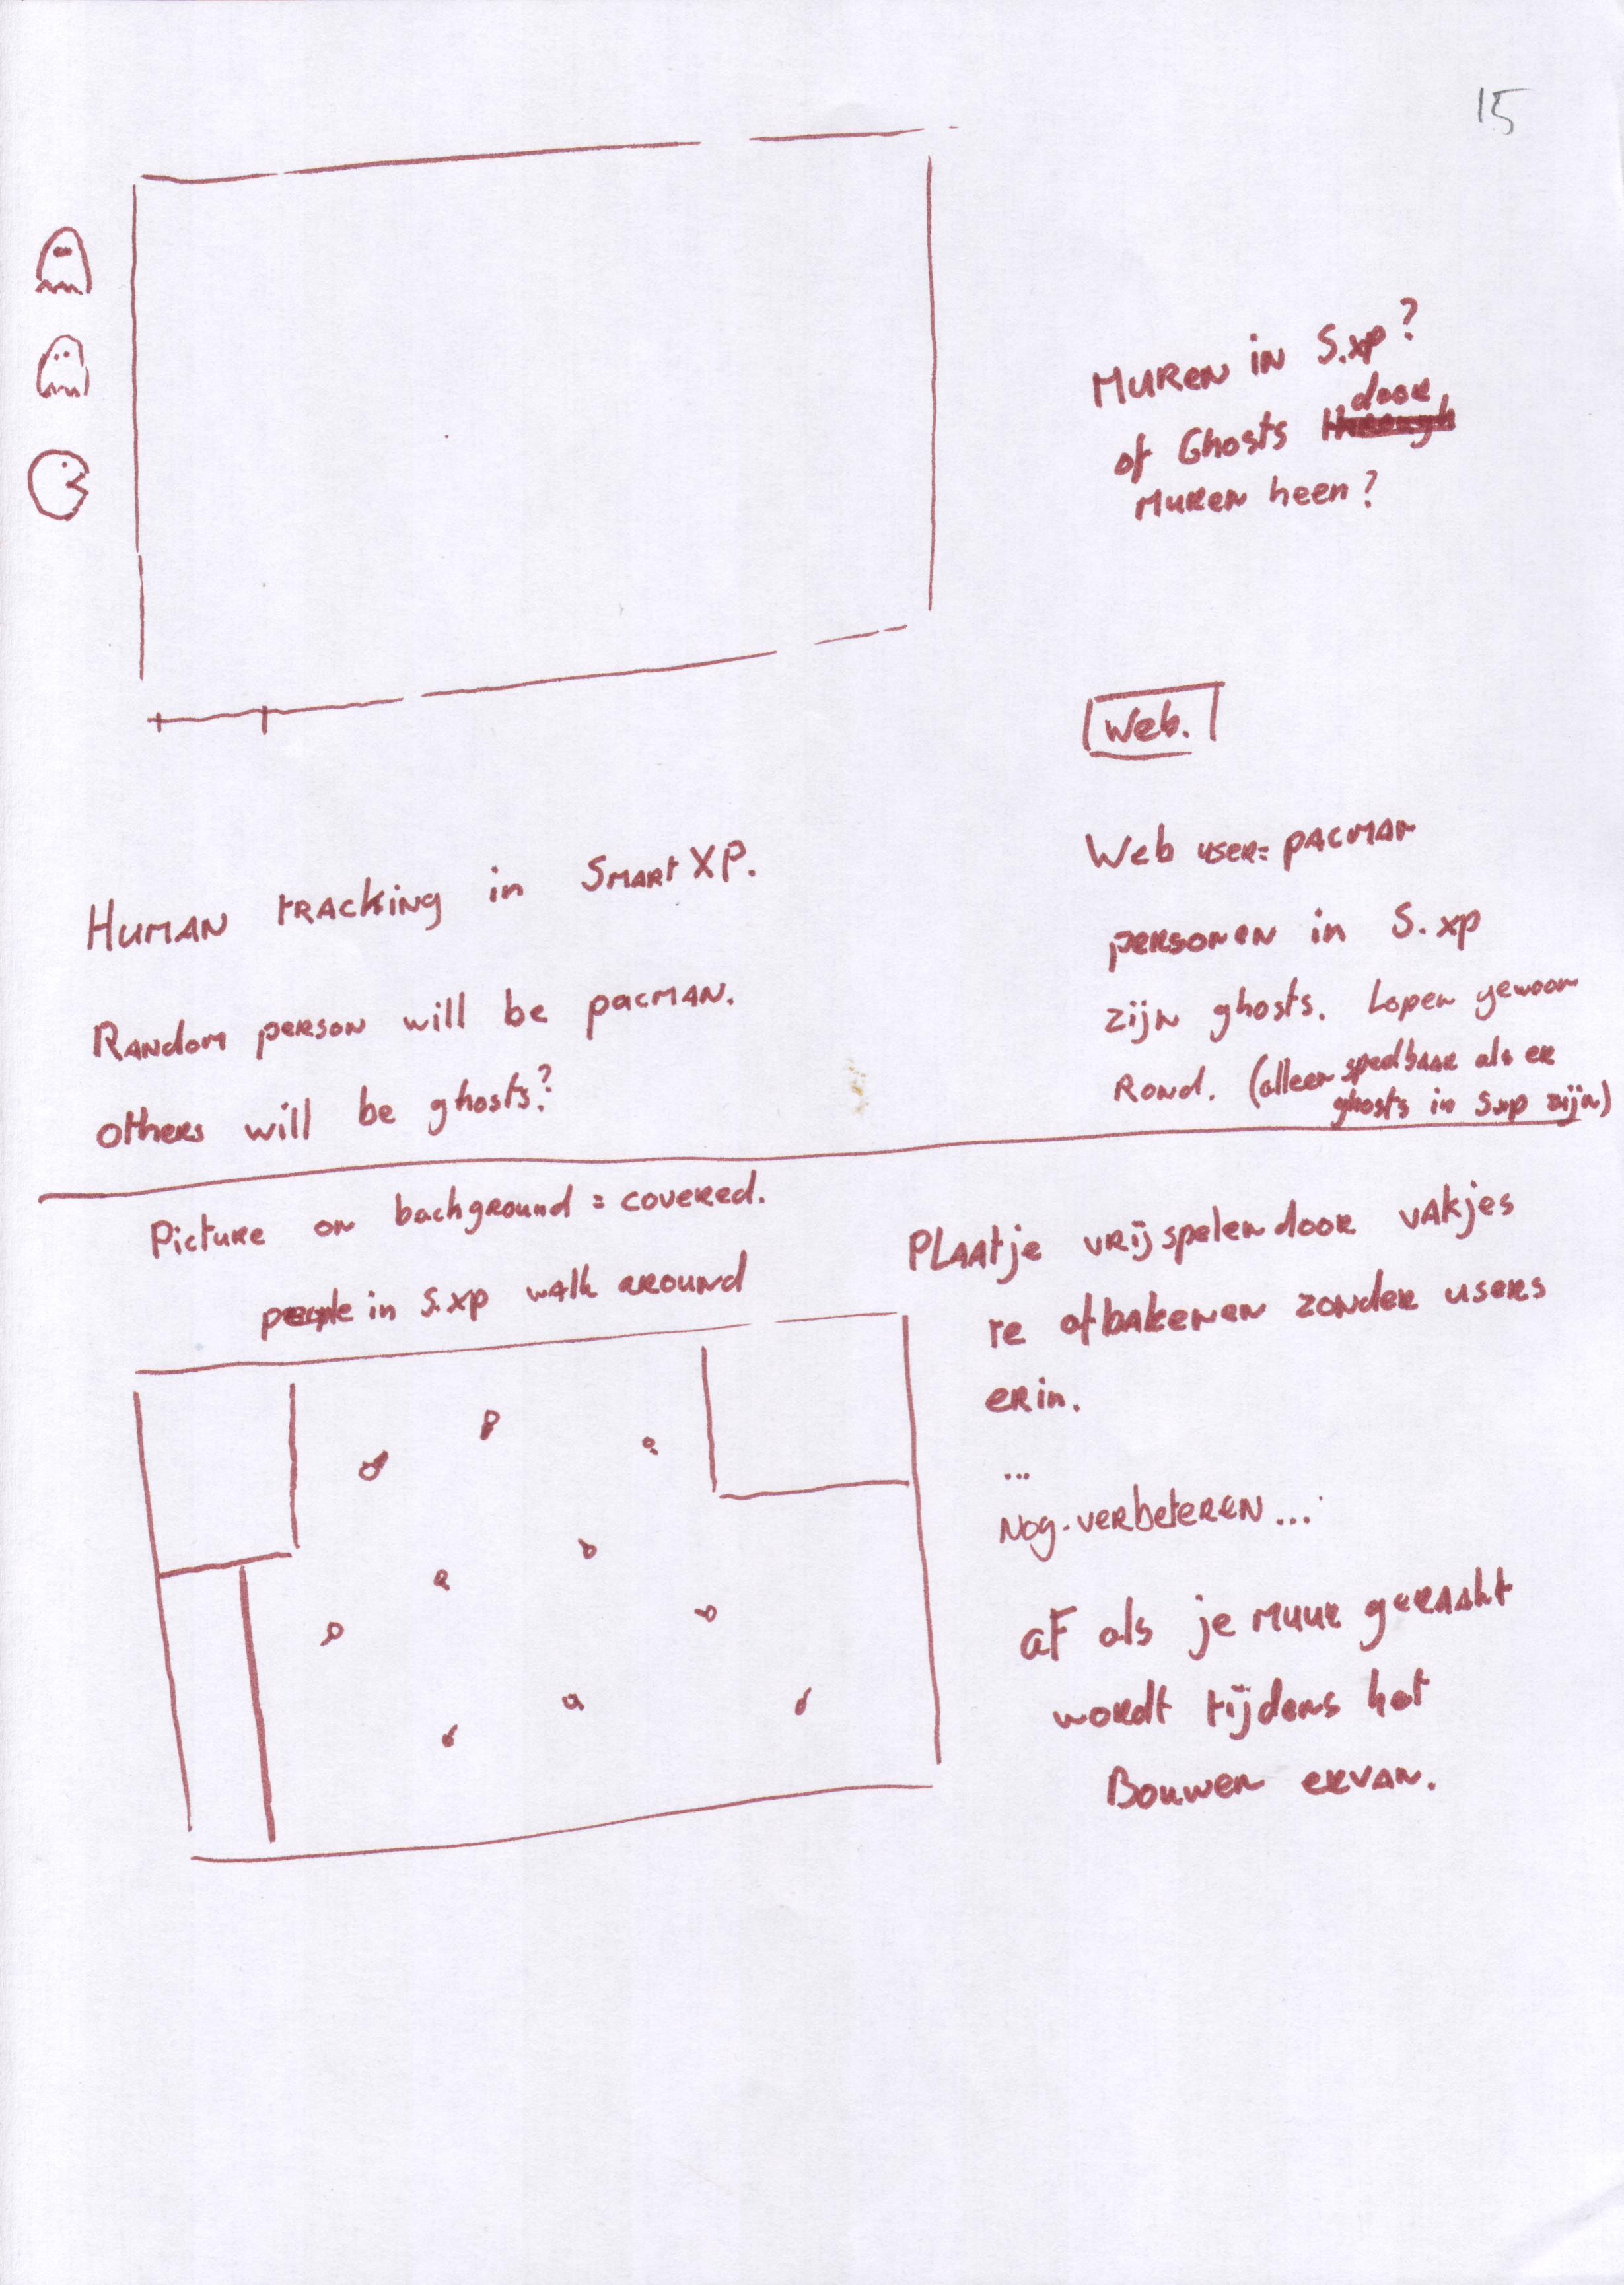 15
MUREN IN S.xp?
of Ghosts door
MUREN heen?
Web.
HUMAN TRACKING in SMART XP.
RANDOM PERSON will be pacMAN.
others will be ghosts?
Web USER= PACMAN
PERSONEN in S.xp
ZIJN ghosts. Lopen gewoon
ROND. (alleen speelbaar als er
ghosts in S.xp zijn)
PICTURE ON background = COVERED.
people in S.xp WALK AROUND
PLAAtje VRIJ spelen door VAKjes
te afbakenen ZONDER USERS
ERin.
...
Nog verbeteren...
aF als je MUUR geraakt
wordt tijdens het
Bouwen ERVAN.